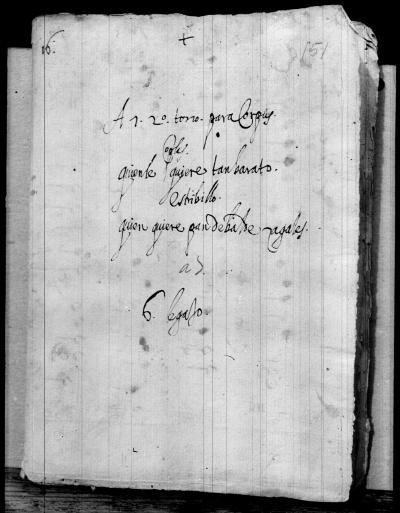 16.
+
151
A 7. 2º. tono. para Corpus.
Coplas.
quien le quiere tan barato.
estribillo.
quien quiere pan de balde zagales.
a 7
6. legajo